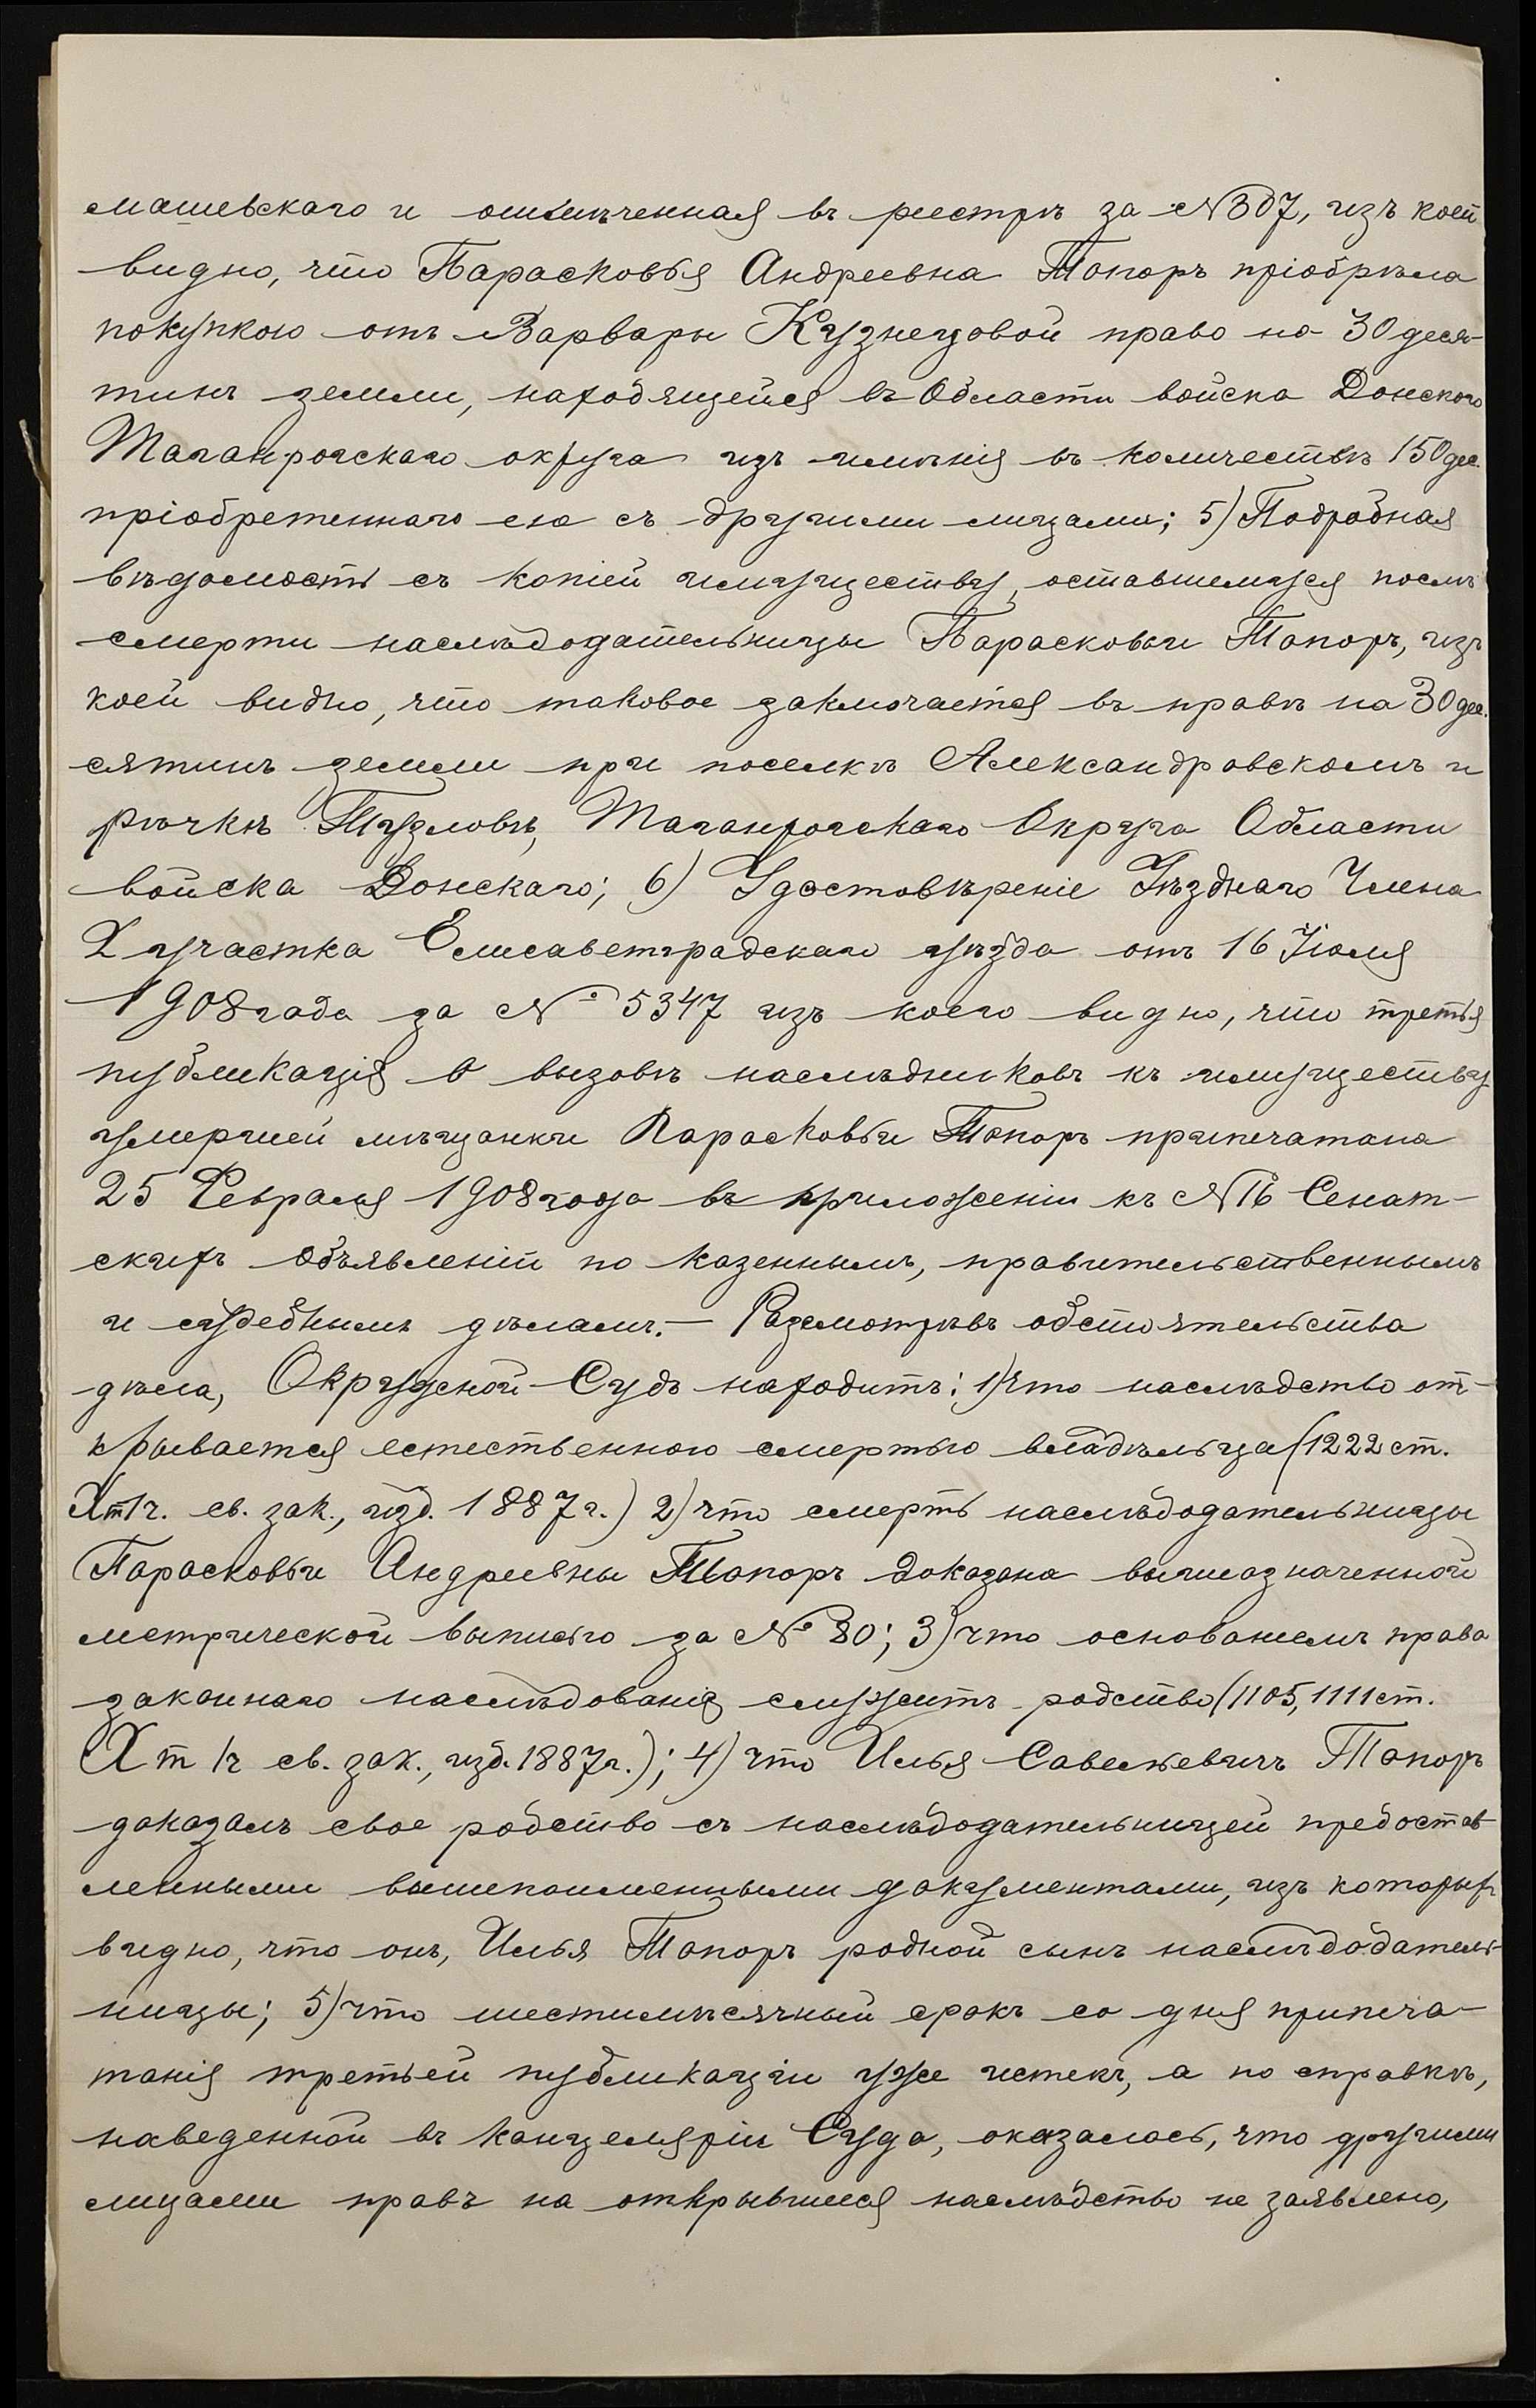 машевскаго и отмѣченная въ реестрѣ за №307, изъ коей
видно, что Парасковья Андреевна Топоръ пріобрѣла
покупкою отъ Варвары Кузнецовой право на 30 деся-
тинъ земли, находящейся въ Области войска Донского
Таганрогскаго округа изъ имѣнія въ количествѣ 150 дес.
пріобретеннаго ею съ другими лицами; 5) Подробная
вѣдомость съ копіей имуществу, оставшемуся послѣ
смерти наслѣдодательницы Парасковьи Топоръ, изъ
коей видно, что таковое заключается въ правѣ на 30 де-
сятинъ земли при поселкѣ Александровскомъ и
рѣчкѣ Тузловѣ, Таганрогскаго Округа Области
войска Донскаго; 6) Удостовѣреніе Уѣзднаго Члена
X участка Елисаветградскаго уѣзда отъ 16 Іюля
1908 года за № 5347 изъ коего видно, что третья
публикація о вызовѣ наслѣдниковъ къ имуществу
умершей мѣщанки Парасковьи Топоръ припечатана
25 Февраля 1908 года въ приложеніи къ №16 Сенат-
скихъ объявленій по казеннымъ, правительственнымъ
и судебнымъ дѣламъ.- Разсмотрѣвъ обстоятельства
дѣла, Окружной Судъ находитъ: 1) что наслѣдство от-
крывается естественною смертью владѣльца (1222 ст.
Xт1ч. св. зак., изд. 1887 г.) 2) что смерть наслѣдодательницы
Парасковьи Андреевны Топоръ доказана вышеозначенной
метрической выписью за № 80; 3) что основаніемъ права
законнаго наслѣдованія служитъ родство (1105, 1111 ст.
X т 1ч св. зак., изд. 1887 г.); 4) что Илья Савельевичъ Топоръ
доказалъ свое родство съ наслѣдодательницей предостав-
ленными вышепоименными документами, изъ которыхъ
видно, что онъ, Илья Топоръ родной сынъ наслѣдодатель-
ницы; 5) что шестимѣсячный срокъ со дня припеча-
танія третьей публикаціи уже истекъ, а по справкѣ,
наведенной въ канцеляріи Суда, оказалось, что другими
лицами правъ на открывшееся наслѣдство не заявлено,